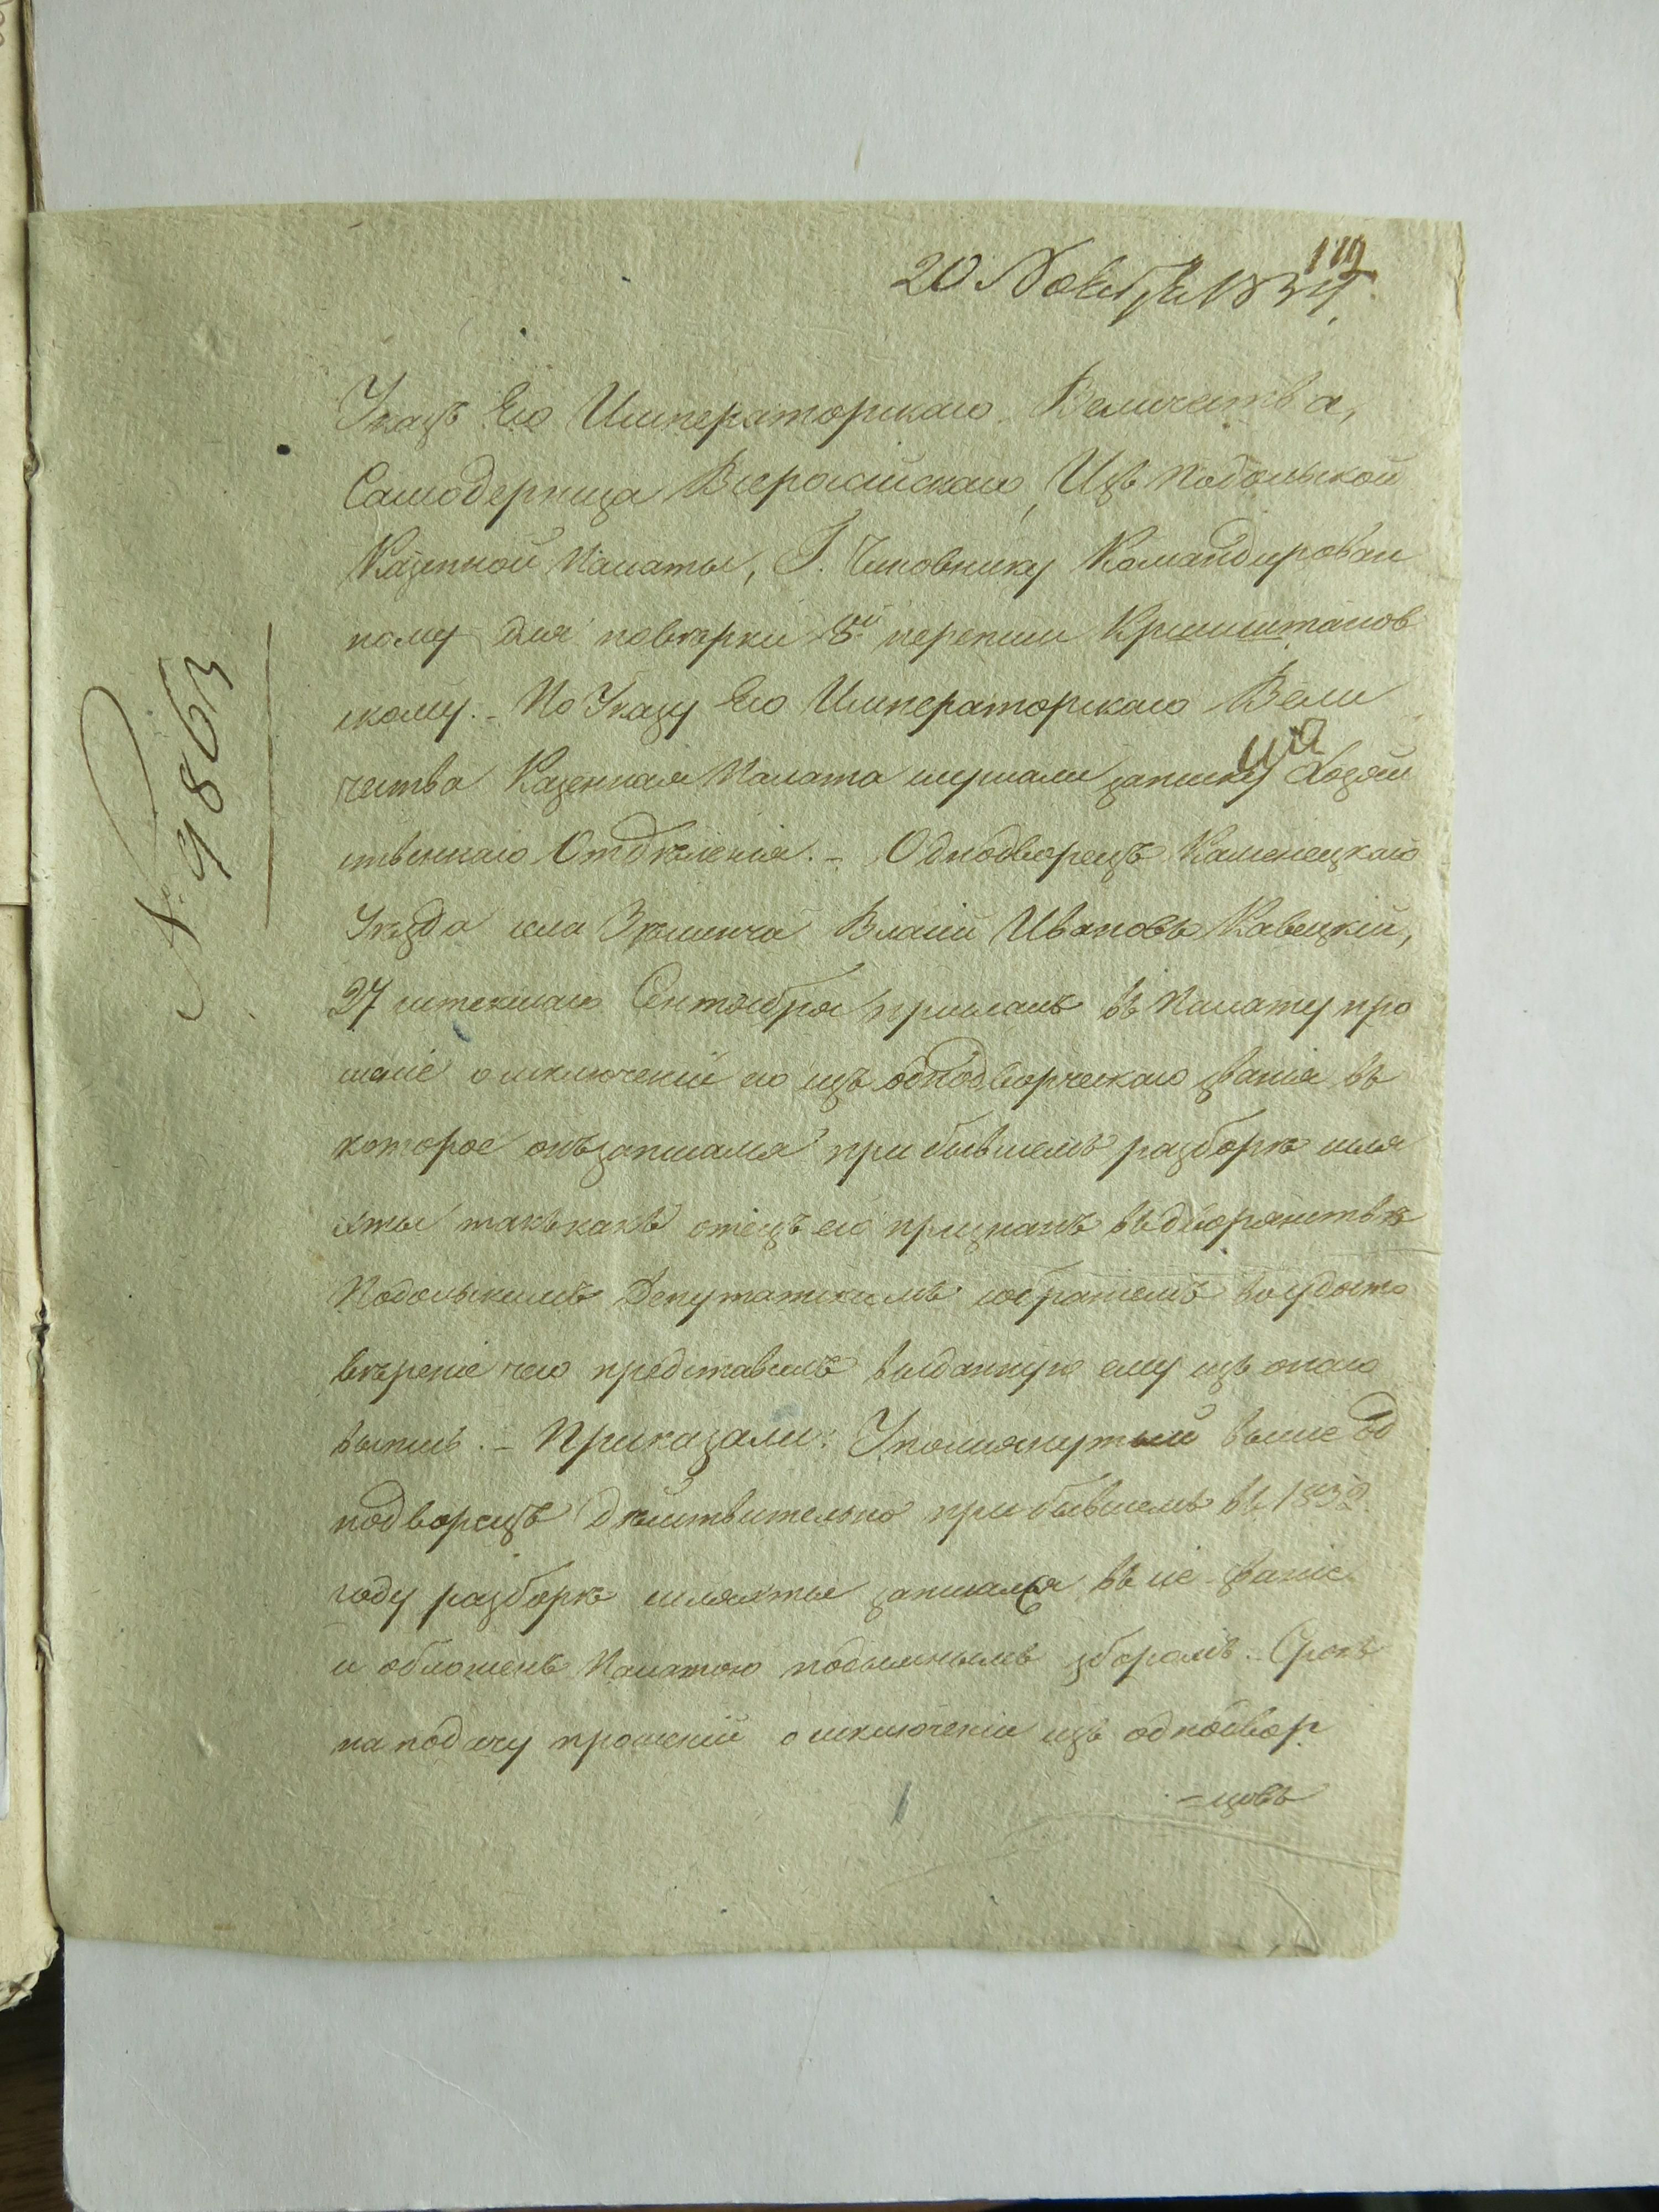 20 Ноября 1834.
Указъ Его Императорскаго Величества,
Самодержца Всеросійскаго, Изъ Подольской
Казенной Палаты, Г. Чиновнику Командирован
ному для повѣрки 8й переписи Кришштанов
скому. - По Указу Его Императорскаго Вели
чества Казенная Палата слушали записку Хозяй
ственнаго Отдѣленія. - Однодворецъ Каменецкаго
Уѣзда села Власій Ивановъ Кавецкій,
27 истекшаго Сентября прислалъ въ Палату про
шеніе о исключеніи его изъ однодворческаго званія въ
которое онъ записался при бывшемъ разборѣ шля
хты такъ какъ отецъ его признанъ въ дворянствѣ
Подольскимъ Депутатскимъ собраніемъ въ удосто
вѣреніе чего представилъ выданную ему изъ онаго
выпись. - Приказали: Упомянутый выше од
нодворецъ дѣйствительно при бывшемъ въ 1832
году разборѣ шляхты записался въ сіе званіе
и обложенъ Палатою подымнымъ зборомъ. - Срокъ
на подачу прошеній о исключеніи изъ однодвор
-цовъ
N. 9863